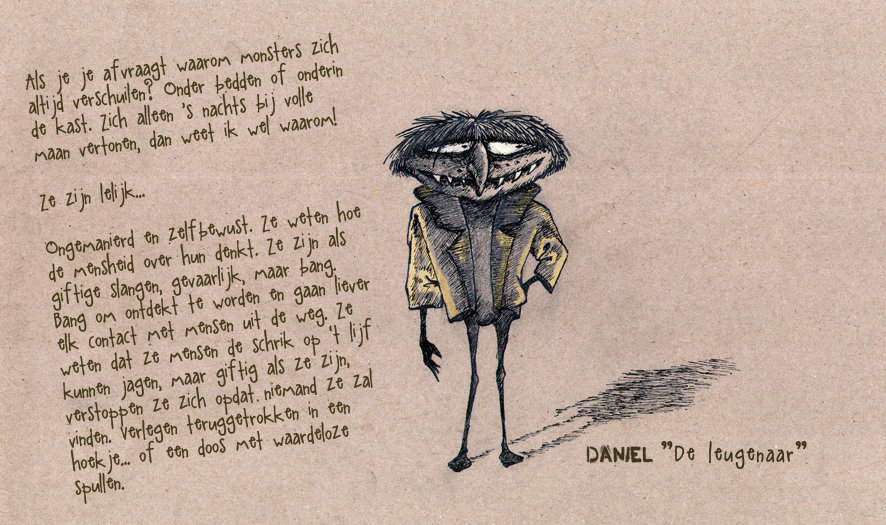 Als je je afvraagt waarom monsters zich
altijd verschuilen? Onder bedden of onderin
de kast. Zich alleen 's nachts bij volle
maan vertonen, dan weet ik wel waarom!
Ze zijn lelijk...
Ongemanierd en zelfbewust. Ze weten hoe
de mensheid over hun denkt. Ze zijn als
giftige slangen, gevaarlijk, maar bang.
Bang om ontdekt te worden en gaan liever
elk contact met mensen uit de weg. Ze
weten dat ze mensen de schrik op 't lijf
kunnen jagen, maar giftig als ze zijn,
verstoppen ze zich opdat niemand ze zal
vinden. Verlegen teruggetrokken in een
hoekje... of een doos met waardeloze
spullen.
DANIEL "De leugenaar"